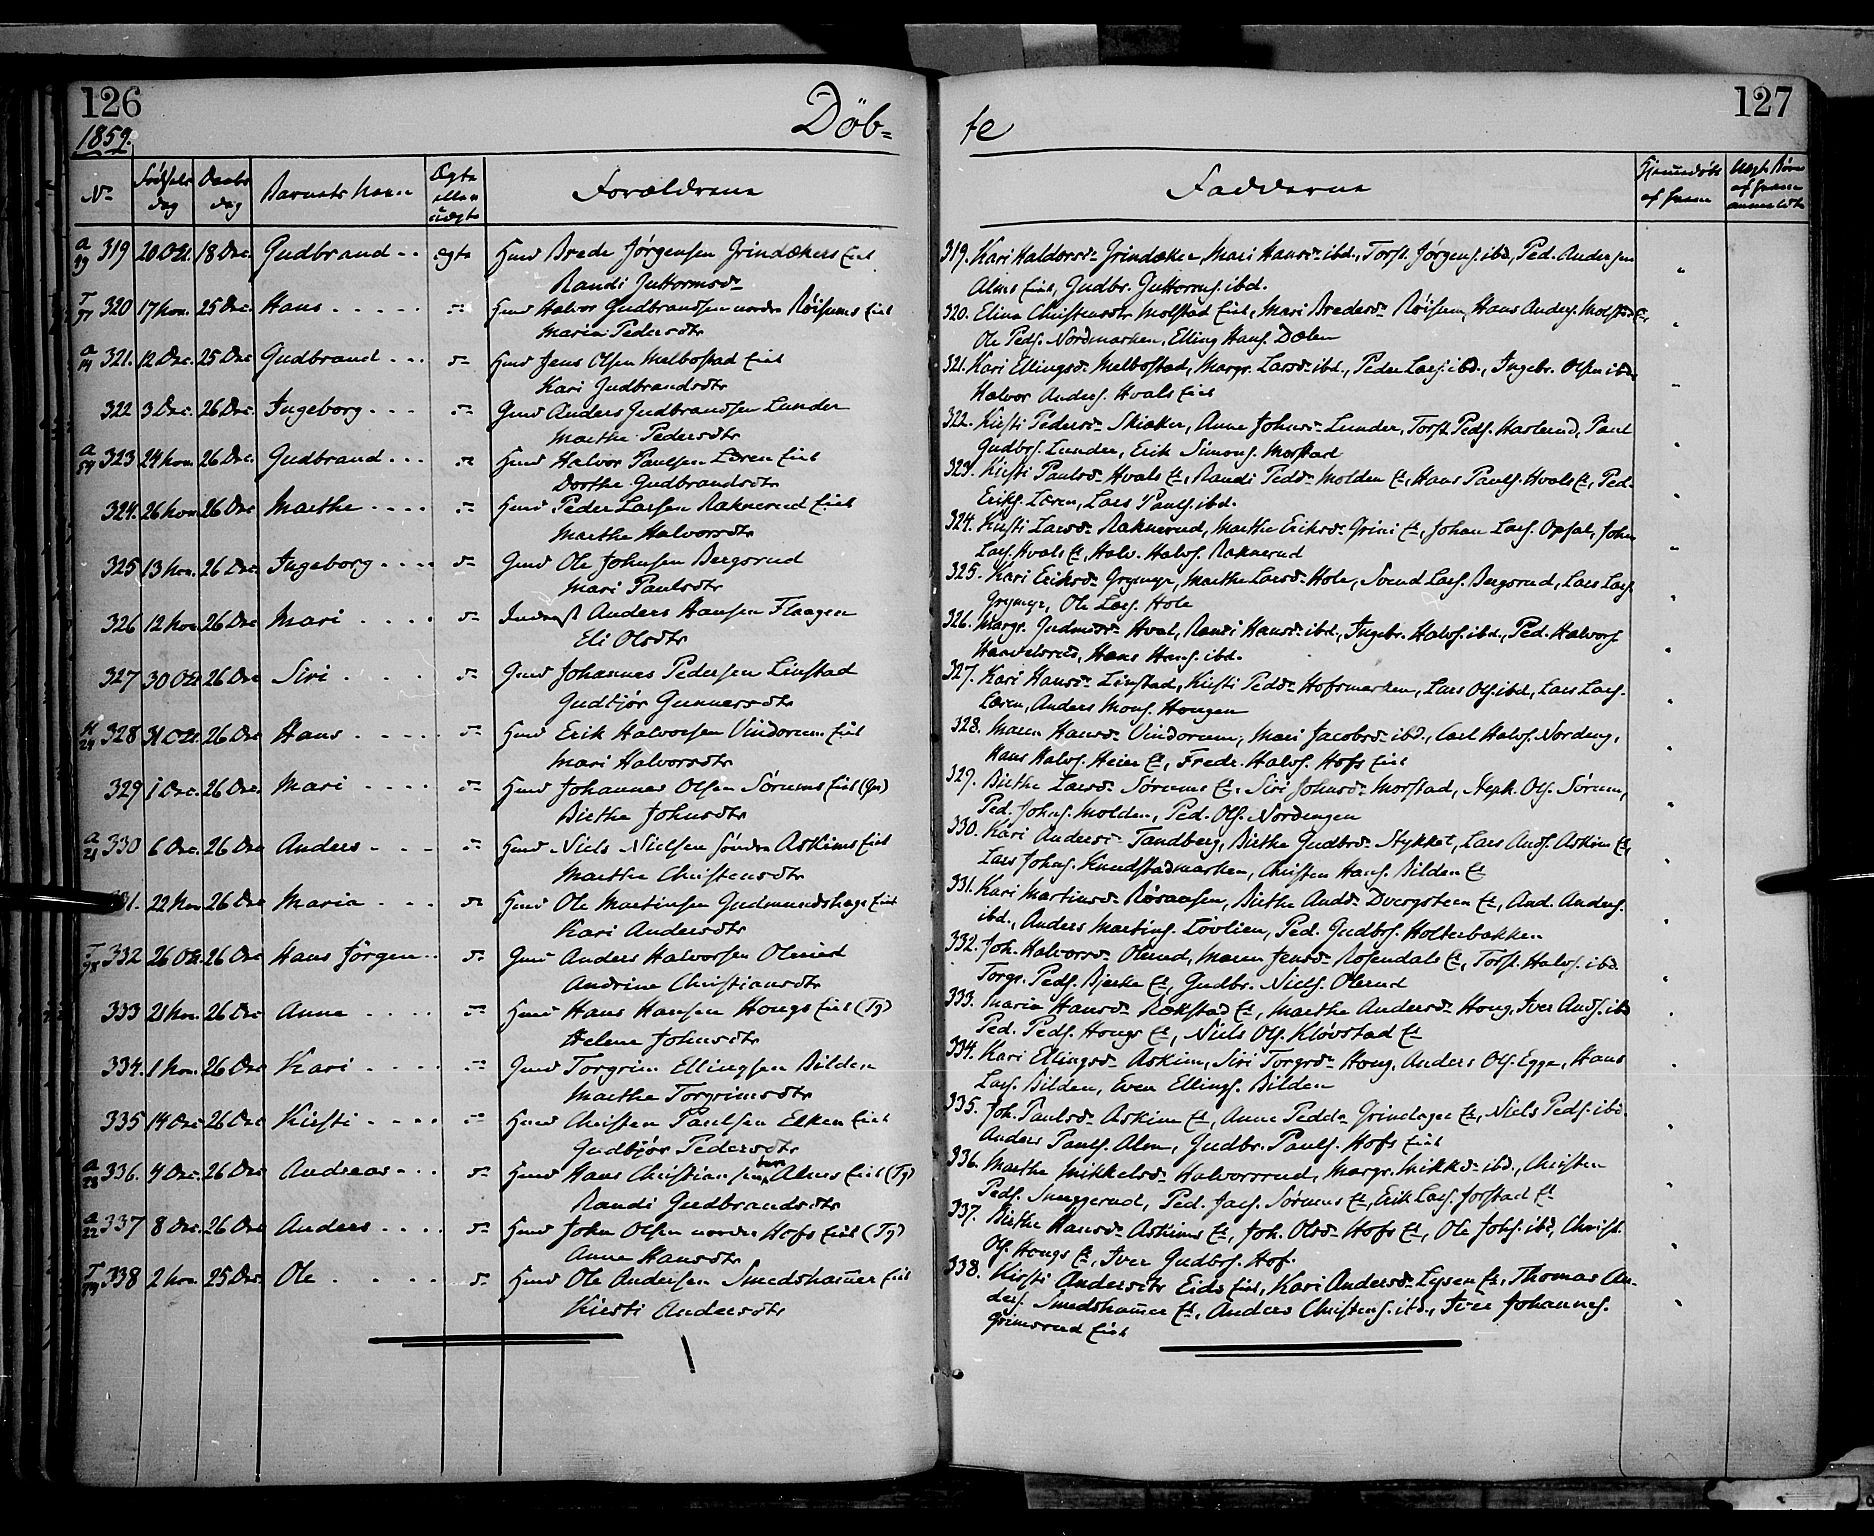 126
1859.
Döb=
No
Fødsels dag
Daabs dag
Barnets Navn
Ægte eller uægte
Forældrene
319 20 Oct. 18 Dec. Gudbrand - - ægte Hmd Brede Jørgensen Grindakers Eiet
Randi Guttormsd.
320 17 Nov. 25 Dec. Hans - - - - - Hmd Halvor Gudbrandsen nordre Røisums Eiet
Maria Pedersdtr
321. 12 Dec. 25 Dec. Gudbrand - - - Hmd Jens Olsen Melbostad Eiet
Kari Gudbrandsdtr
322 3 Dec. 26 Dec. Ingeborg - - - Gmd Anders Gudbrandsen Lunder
Marthe Pedersdtr
323 24 Nov. 26 Dec. Gudbrand - - - Hmd Halvor Paulsen Læren Eiet
Dorthe Gudbrandsdtr
324. 26 Nov. 26 Dec Marthe - - - - Hmd Peder Larsen Raknerud Eiet
Marthe Halvorsdtr
325 13 Nov. 26 Dec. Ingeborg - - - - Gmd Ole Johnsen Bergsrud
Mari Paulsdtr
326 12 Nov. 26 Dec Mari - - - - Anders Hansen Flaagen
Eli Olsdtr
327 30 Oct 26 Dec Siri - - - - Gmd Johannes Pedersen Linstad
Gudbjør Gunnersdtr
328 31 Oct. 26 Dec Hans - - - - - Hmd Erik Halvorsen Vindorum Eiet
Mari Halvorsdtr
329 1 Dec. 26 Dec. Mari - - - - Hmd Johannes Olsen Sørums Eiet
Birthe Johnsdtr
330 6 Dec. 26 Dec Anders - - - Hmd Niels Nielsen søndre Askims Eiet
Marthe Christensdtr
331. 22 Nov 26 Dec Maria - - - Hmd Ole Martinsen Gudmundshage Eiet
Kari Andersdtr
332 26 Oct. 26 Dec Hans Jørgen - - Gmd Anders Halvorsen Olerud
Andrine Christiansdtr
333 21 Nov. 26 Dec Anne - - - - Hmd Hans Hansen Hougs Eiet (Tg)
Helene Johnsdtr
334. 1 Nov. 26 Dec Kari - - - - Gmd Torgrim Ellingsen Bilden
Marthe Torgrimsdtr
335 14 Dec 26 Dec Kirsti - - - - Hmd Christen Paulsen Elken Eiet
Gudbjør Pedersdtr
336. 4 Dec. 26 Dec Andreas - - - Hmd Hans Christiansen Alms Eiet (Tg)
Randi Gudbrandsdtr
337 8 Dec. 26 Dec Anders - - - - Hmd John Olsen nordre Hofs Eiet (Tg)
Anne Hansdtr
338 2 Nov. 25 Dec. Ole - - - - - Hmd Ole Andersen Smedshammer Eiet
Kirsti Andersdtr
127
te
Fadderne
Hjemmedøbt af hvem
Uægte Børn af hvem anmeldte
319. Kari Haldorsd. Grindaker, Mari Hansd. ibd., Torst. Jørgens. ibd., Ped. Andersen
Alms Eiet, Gudbr. Guttorms. ibd.
320. Eline Christensdtr Molstad Eiet, Mari Bredesd. Røisum, Hans Anders. Molstad E.,
Ole Peds. Nordmarken, Elling Hans. Dælen
321. Kari Ellingsd. Melbostad, Margr. Larsd. ibd., Peder Lars. ibd., Ingebr. Olsen ibd.
Halvor Anders. Hvals Eiet
322. Kirsti Pedersd. Skiaker, Anne Johnsd. Lunder, Torst. Peds. Haslerud, Paul
Gudbs. Lunder, Erik Simons. Morstad
323. Kirsti Paulsd. Hvals Et, Randi Pedsd. Molden Et, Hans Pauls. Hvals Et, Ped.
Eriks. Læren, Lars Pauls. ibd.
324. Kirsti Larsd. Raknerud, Marthe Eriksd. Grini Et, Johan Lars. Opsal, John
Lars. Hvals Et, Halv. Halvs. Raknerud
325. Kari Eriksd. Grymyr, Marthe Larsd. Hole, Svend Lars. Bergsrud, Lars Lars.
Grymyr, Ole Lars. Hole
326. Margr. Gudmsd. Hval, Randi Hansd. ibd., Ingebr. Halvs. ibd., Ped. Halvors.
Hans Hans. ibd.
327. Kari Hansd. Linstad, Kirsti Pedsd. Hofsmarken, Lars Ols. ibd., Lars Lars.
Læren, Anders Mons. Hougen
328. Maren Hansd. Vindorum, Mari Jacobsd. ibd., Carl Halvs. Nordeng,
Hans Halvs. Heier Et, Fredr. Halvs. Hofs Eiet
329. Birthe Larsd. Sørums Et, Siri Johnsd. Morstad, Steph. Ols. Sørum,
Ped. Johns. Molden, Ped. Ols. Nordengen
330. Kari Andersd. Tandberg, Birthe Gudbsd. Stykket, Lars Ands. Askim Et,
Lars Johns. Knudstadmarken, Christen Hans. Bilden Et
331. Kari Martinsd. Røsaasen, Birthe Andsd. Dvergsteen Et, And. Anders.
ibd., Anders Martins. Løvlien, Ped. Gudbs. Holterbakken
332. Joh. Halvorsd. Olerud, Maren Jensd. Rosendals Et, Torst. Halvs. ibd.
Torgr. Peds. Bjerke Et, Gudbr. Niels. Olerud
333. Maria Hansd. Rækstad Et, Marthe Andersd. Houg, Iver Ands. ibd
Ped. Peds. Hougs Et, Niels Ols. Kløvstad Et
334. Kari Ellingsd. Askim, Siri Torgrsd. Houg, Anders Ols. Egge, Hans
Lars. Bilden, Even Ellings. Bilden
335. Joh. Paulsd. Askim Et, Anne Pedsd. Grindager Et, Niels Peds. ibd.
Anders Pauls. Alm, Gudbr. Pauls. Hofs Eiet
336. Marthe Mikkelsd. Halvorsrud, Margr. Mikksd. ibd., Christen
Peds. Snuggerud, Ped. Jacs. Sørums Et, Erik Lars. Jorstad Et
337. Birthe Hansd. Askims Et, Joh. Olsd. Hofs Et, Ole Johs. ibd, Christ.
Ols. Hougs Et, Iver Gudbs. Hof.
338. Kirsti Andersdtr Eids Eiet, Kari Andersd. Lysen Et, Thomas An-
ders. Smedshammer Et, Anders Christens. ibd., Iver Johannes.
Grimsrud Eiet